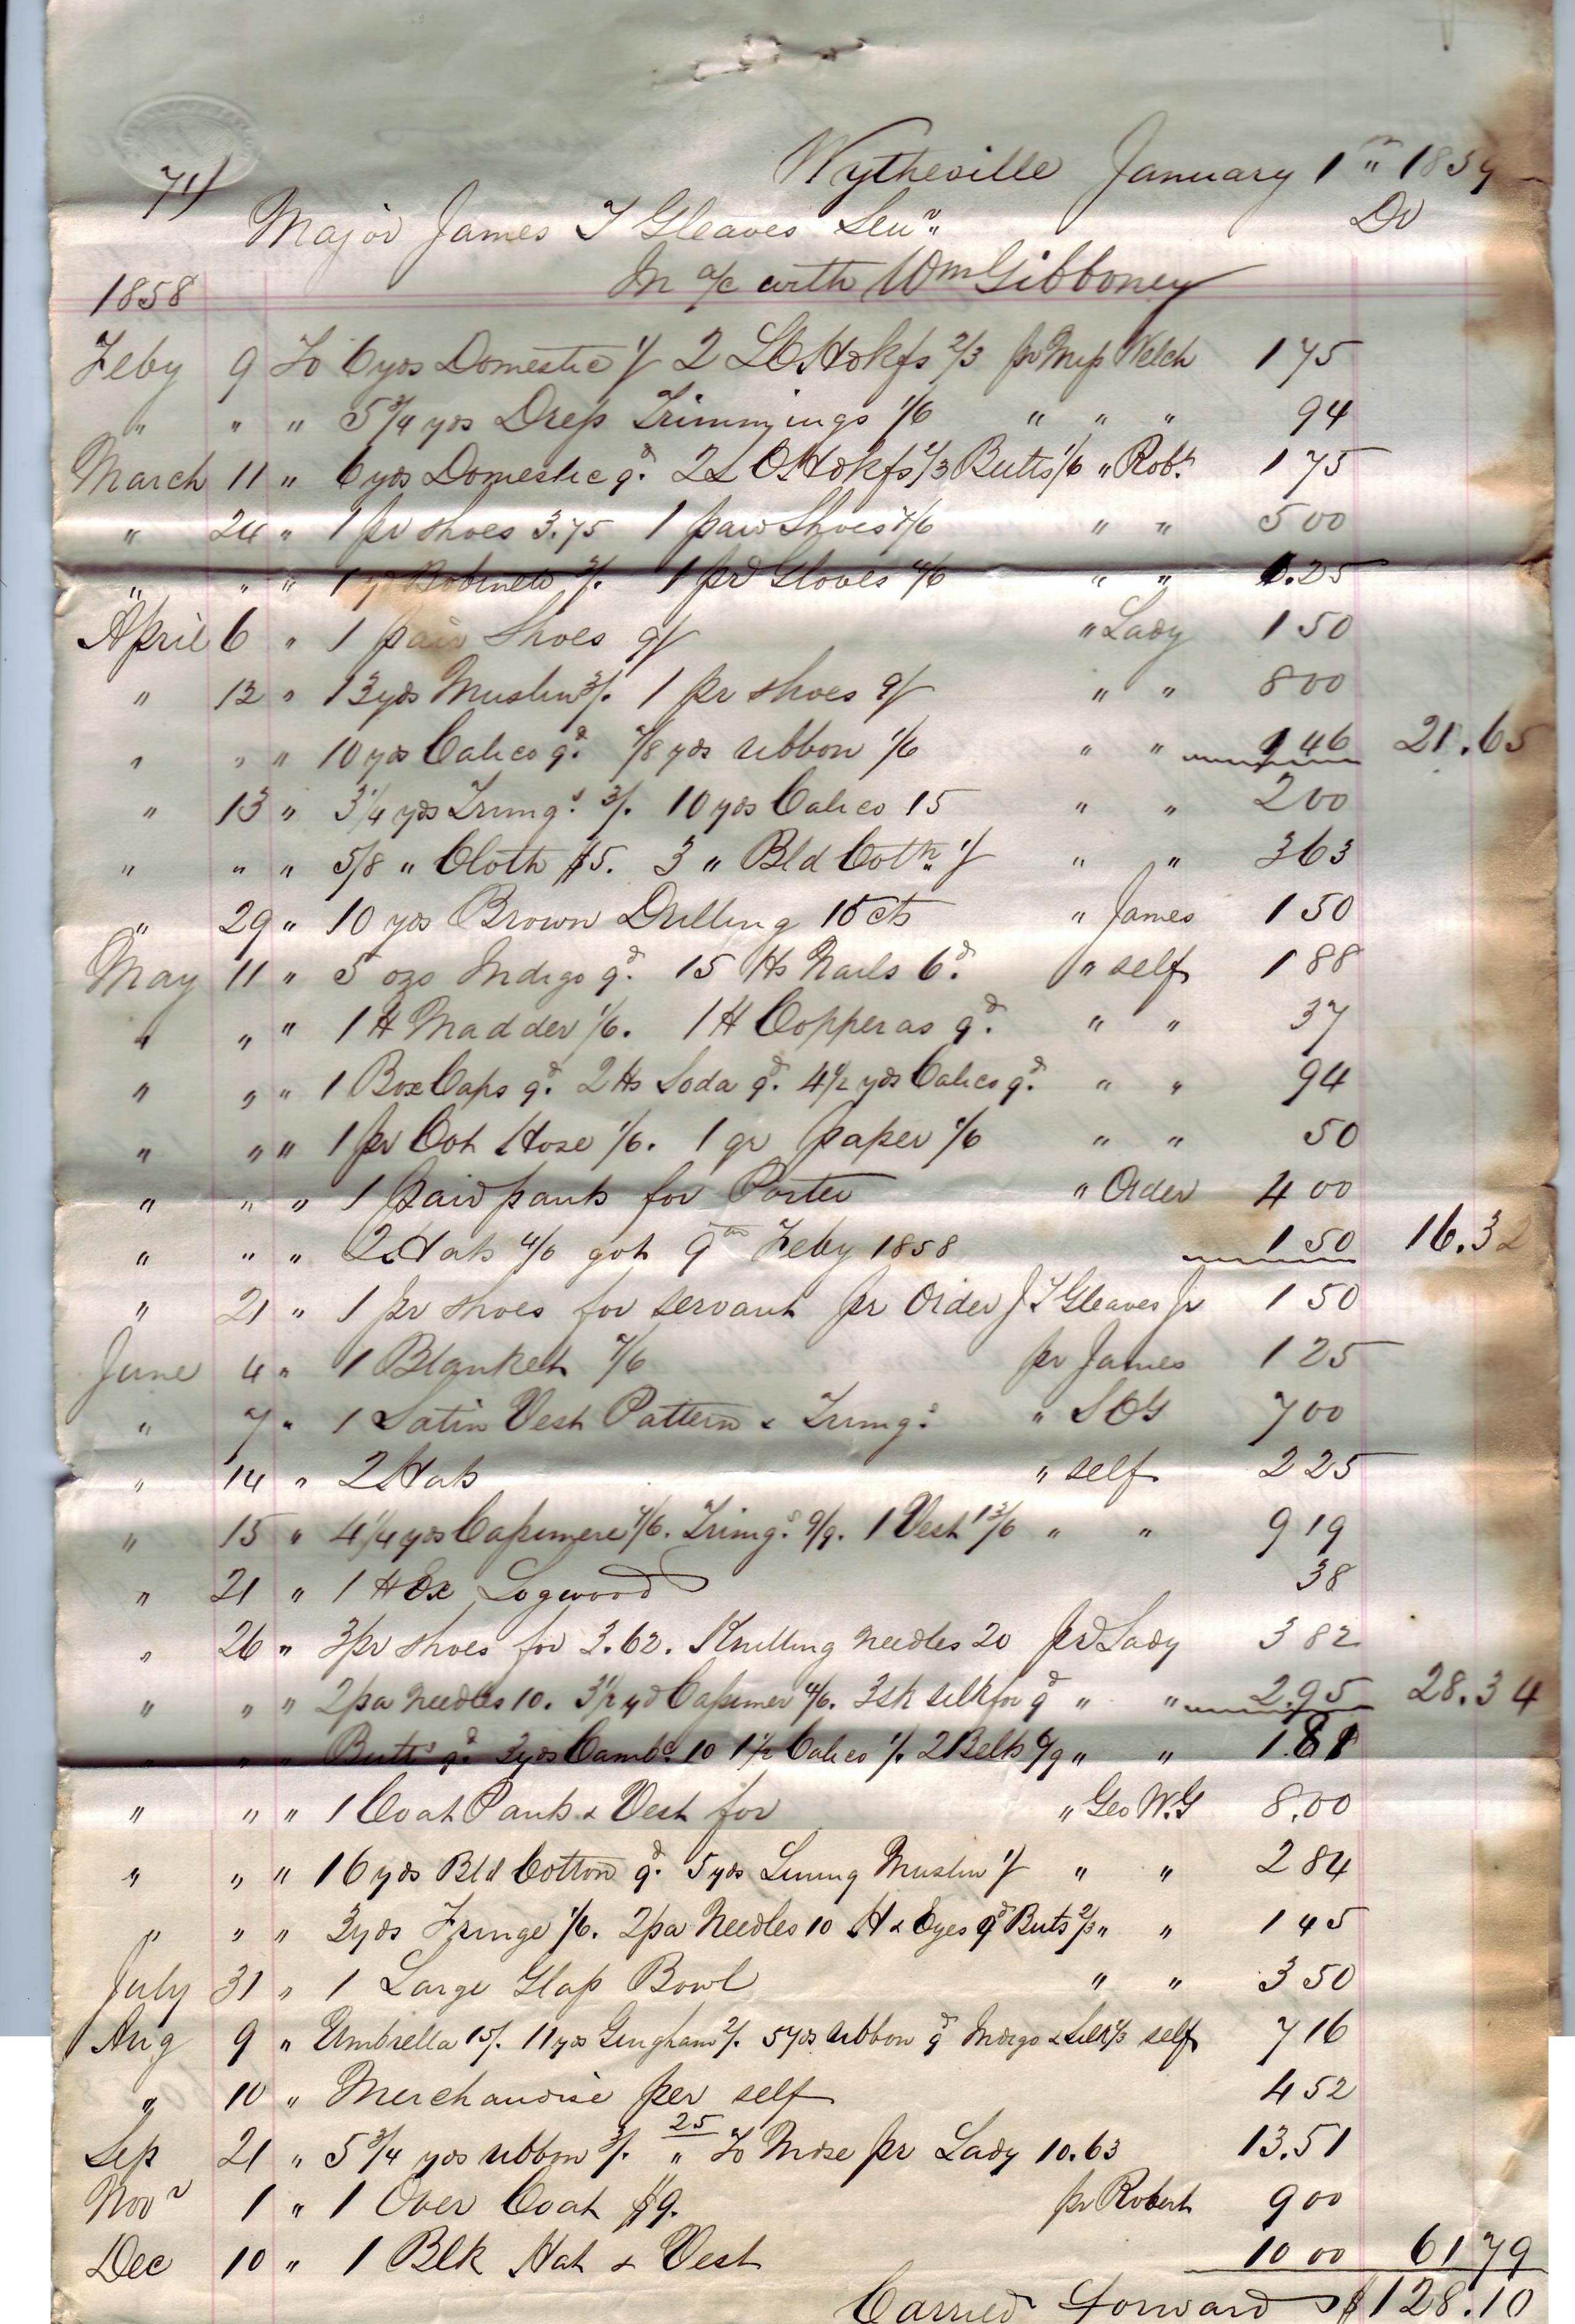 71)
Wytheville January 1st 1859
Major James T Gleaves Senr Dr
In a/c with Wm Gibboney
1858
Feby 9 To 6 yds Domestic 1/ 2 L C Hdkfs 2/3 pr Miss Welch 1 75
" " " 5 3/4 yds Dress Trimmings 1/6 " " " 94
March 11 " 6 yds Domestic 9d 2 L C Hdkfs 2/3 Butts 1/6 " Robt 1 75
" 24 " 1 pr shoes 3.75 1 pair Shoes 7/6 " " 5 00
" " " 1 yd Bobinett 3/. 1 pr Gloves 4/6 " " 1.25
April 6 " 1 pair Shoes 9/ " Lady 1 50
" 12 " 13 yds Muslin 3/. 1 pr shoes 9/ " " 8 00
" " " 10 yds Calico 9d 7/8 yds ribbon 1/6 " " 1 46 21.65
" 13 " 3 1/4 yds Trimgs 3/. 10 yds Calico 15 " " 2 00
" " " 5/8 " Cloth $5. 3 " Bld Cotn 1/ " " 3 63
" 29 " 10 yds Brown Drilling 15 cts " James 1 50
May 11 " 5 ozs Indigo 9d. 15 lbs Nails 6d. " self 1 88
" " " 1 lb Madder 1/6. 1 lb Copperas 9d. " " 37
" " " 1 Box Caps 9d. 2 lbs Soda 9d. 4 1/2 yds Calico 9d. " " 94
" " " 1 pr Cot Hose 1/6. 1 qr paper 1/6 " " 50
" " " 1 pair pants for Porter " Order 4 00
" " " 2 Hats 4/6 got 9th Feby 1858 1 50 16.32
" 21 " 1 pr shoes for servant pr Order J T Gleaves Jr 1 50
June 4 " 1 Blanket 7/6 pr James 1 25
" 7 " 1 Satin Vest Pattern & Trimgs " S C G 7 00
" 14 " 2 Hats " self 2 25
" 15 " 4 1/4 yds Cassimere 7/6. Trimgs 9/9. 1 Vest 13/6 " " 9 19
" 21 " 1 lb Ex Logwood 38
" 26 " 3 pr shoes for 3.62. Knitting needles 20 pr Lady 3 82
" " " 2 pa needles 10. 3 1/2 yd Cassimer 4/6. 3 sk silk for 9d " " 2.95 28.34
" " " Butts 9d. 3 yds Cambc 10 1 1/2 Calico 1/. 2 Belts 4/9 " " 1.88
" " " 1 Coat Pants & Vest for " Geo W. G 8.00
" " " 16 yds Bld Cotton 9d. 5 yds Lining Muslin 1/ " " 2 84
" " " 3 yds Fringe 1/6. 2 pa Needles 10 H & Eyes 9d Buts 2/3 " " 1 45
July 31 " 1 Large Glass Bowl " " 3 50
Aug 9 " Umbrella 15/. 11 yds Gingham 2/. 5 yds ribbon 9d Indigo & Silk 1/3 self 7 16
" 10 " Merchandise per self 4 52
Sep 21 " 5 3/4 yds ribbon 3/. 25 " To Mdse pr Lady 10.63 13.51
Novr 1 " 1 Over Coat $9. pr Robert 9 00
Dec 10 " 1 Blk Hat & Vest 10 00 61 79
Carried Forward $128.10